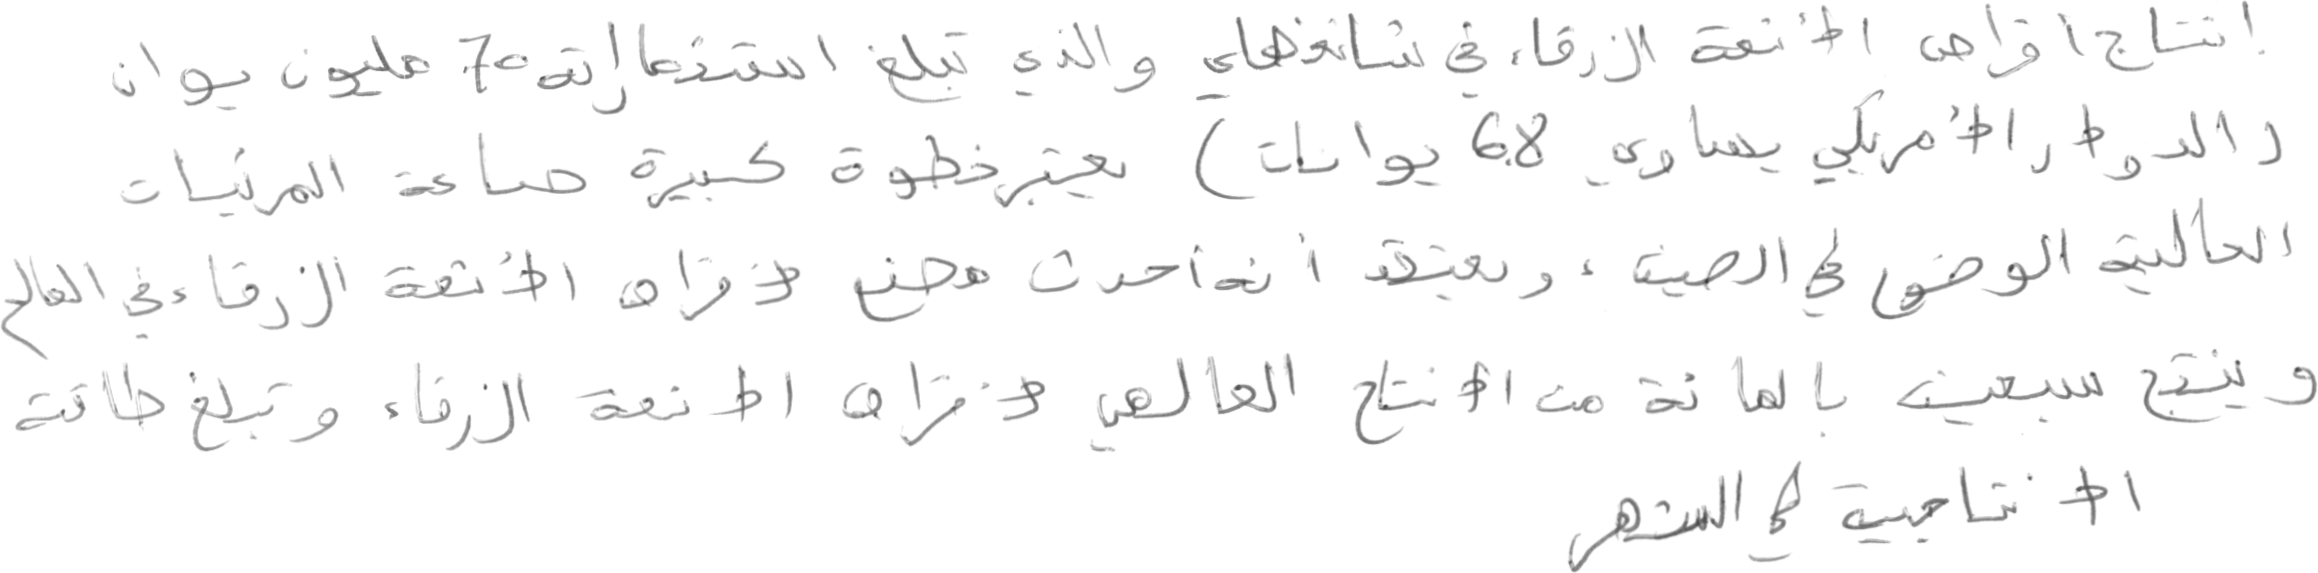 إنتاج أقراص الأشعة الزرقاء في شانغهاي والذي تبلغ استثماراته 70 مليون يوان
(الدولار الأمريكي يساوي 6.8 يوانات) يعتبر خطوة كبيرة صناعة المرئيات
العالية الوضوح في الصين، ويعتقد أنه أحدث مصنع لأقراص الأشعة الزرقاء في العالم
وينتج سبعين بالمائة من الانتاج العالمي لأقراص الاشعة الزرقاء وتبلغ طاقته
الانتاجية في الشهر